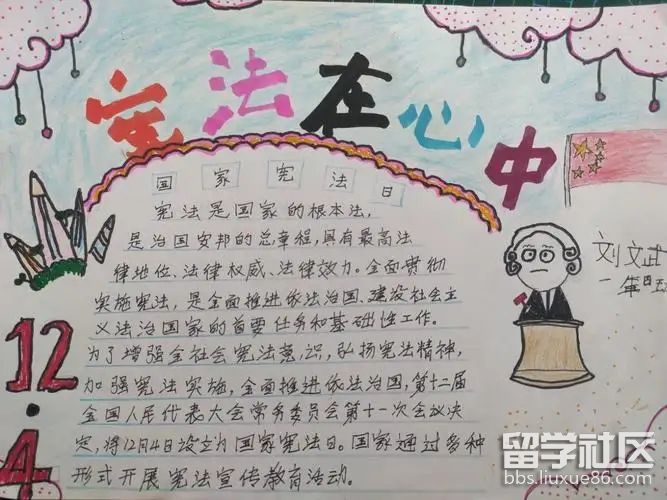 宪法在心中
国家宪法日
宪法是国家的根本法,
是治国安邦的总章程,具有最高法
律地位、法律权威、法律效力。全面贯彻
实施宪法,是全面推进依法治国、建设社会主
义法治国家的首要任务和基础性工作。
为了增强全社会宪法意识,弘扬宪法精神,
加强宪法实施,全面推进依法治国,第十二届
全国人民代表大会常务委员会第十一次会议决
定,将12月4日设立为国家宪法日。国家通过多种
形式开展宪法宣传教育活动。
刘文武
一年四班
12.4
留学社区
bbs.liuxue86.com